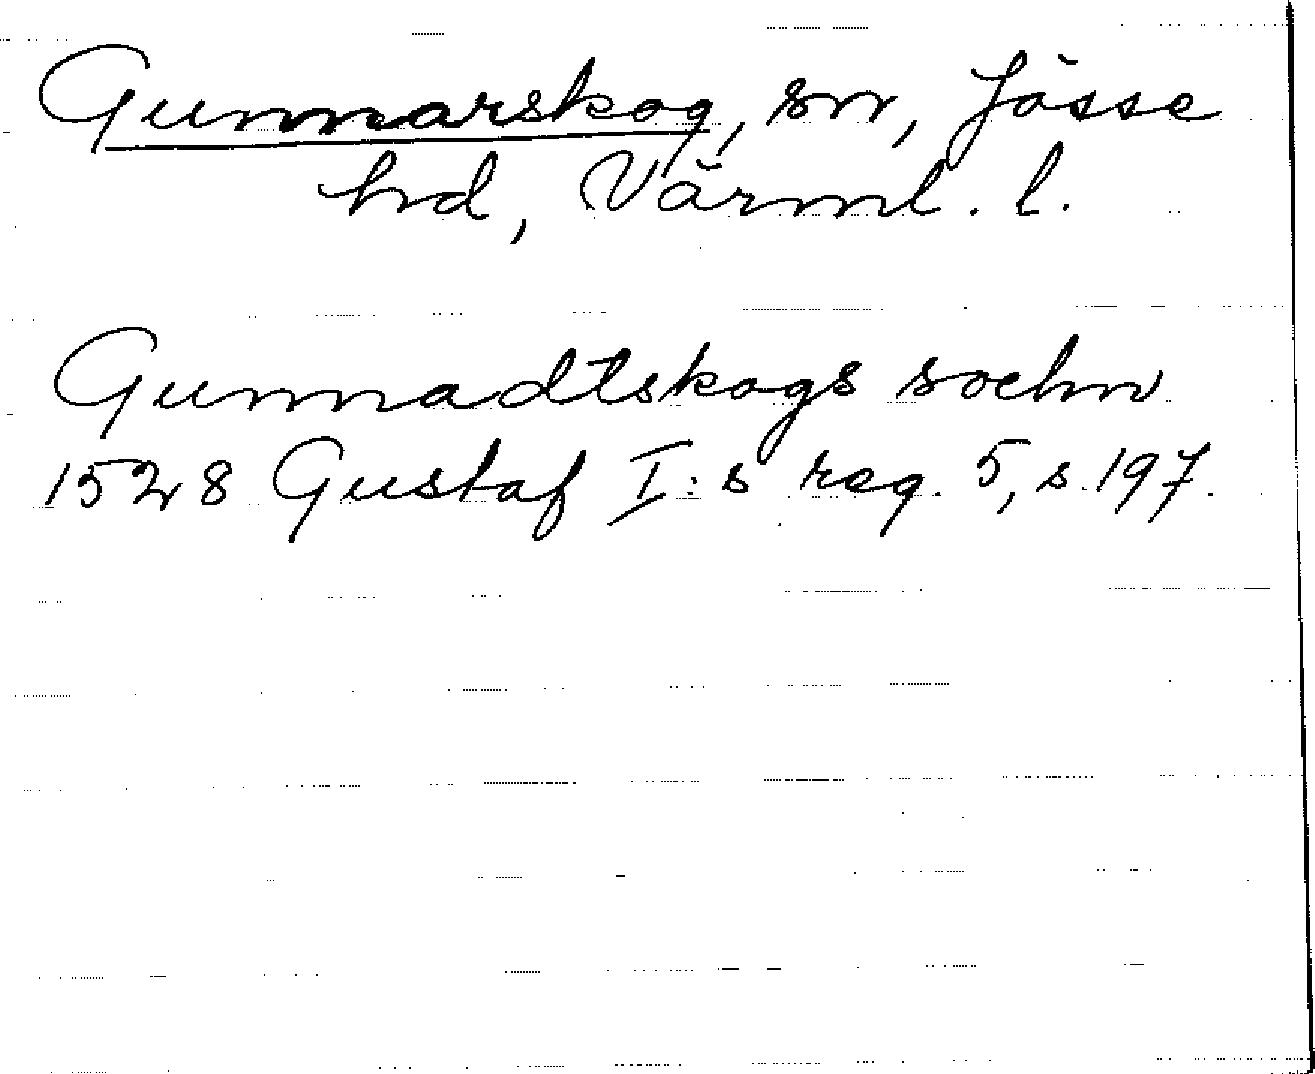 Gunnarskog, sn, Jösse
hd, Värml. l.
Gunnadtskogs sochn
1528 Gustaf I:s reg. 5, s. 197.